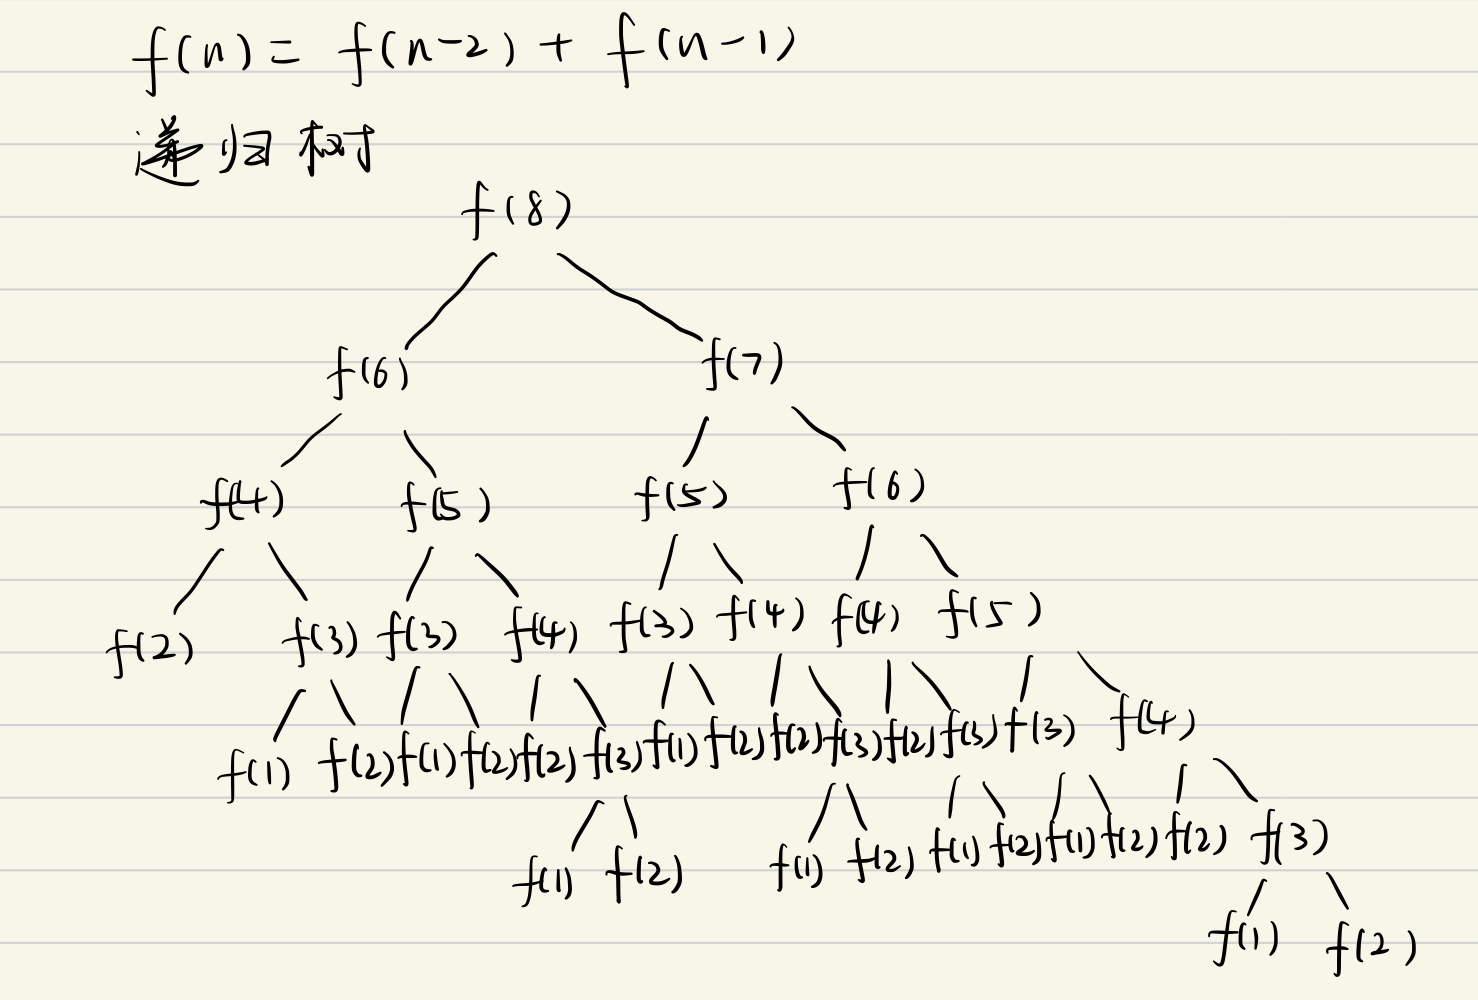 f(n) = f(n-2) + f(n-1)
递归树
f(8)
f(6) f(7)
f(4) f(5) f(5) f(6)
f(2) f(3) f(3) f(4) f(3) f(4) f(4) f(5)
f(1) f(2) f(1) f(2) f(2) f(3) f(1) f(2) f(2) f(3) f(2) f(3) f(3) f(4)
f(1) f(2) f(1) f(2) f(1) f(2) f(1) f(2) f(2) f(3)
f(1) f(2)